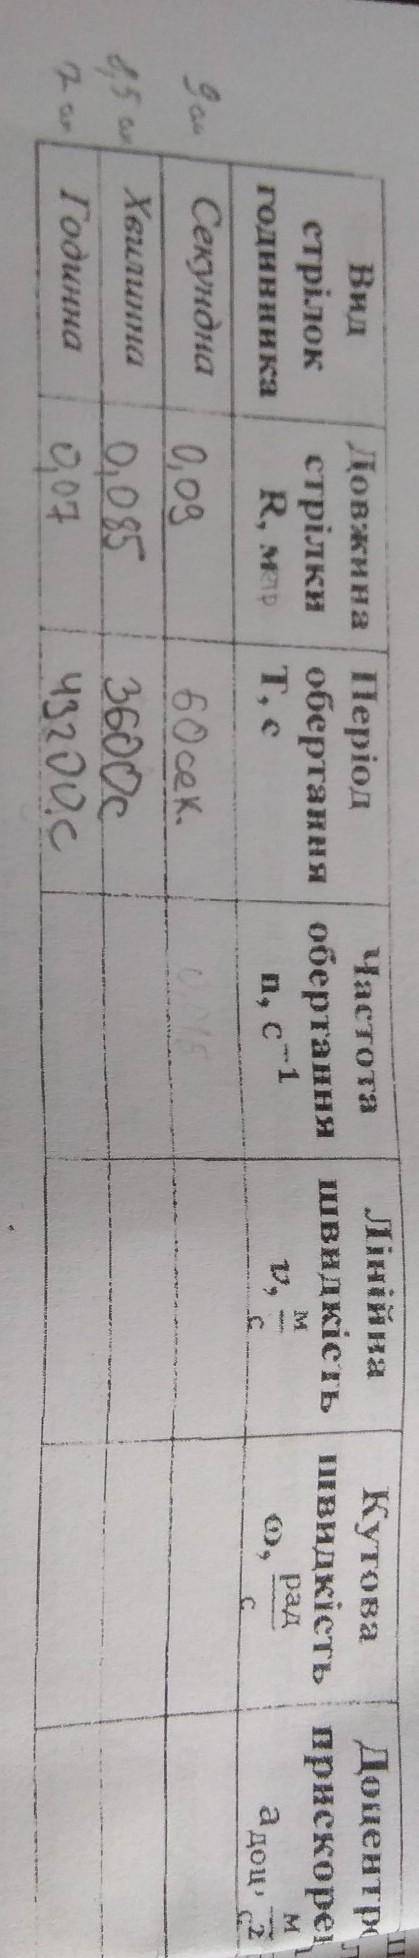 Вид
стрілок
годинника
Довжина
стрілки
R, м
Період
обертання
T, с
Частота
обертання
n, с⁻¹
Лінійна
швидкість
υ, м/с
Кутова
швидкість
ω, рад/с
Доцентро
прискорен
aдоц, м/с²
9 см
Секундна
0,09
60 сек.
8,5 см
Хвилинна
0,085
3600с
7 см
Годинна
0,07
43200с